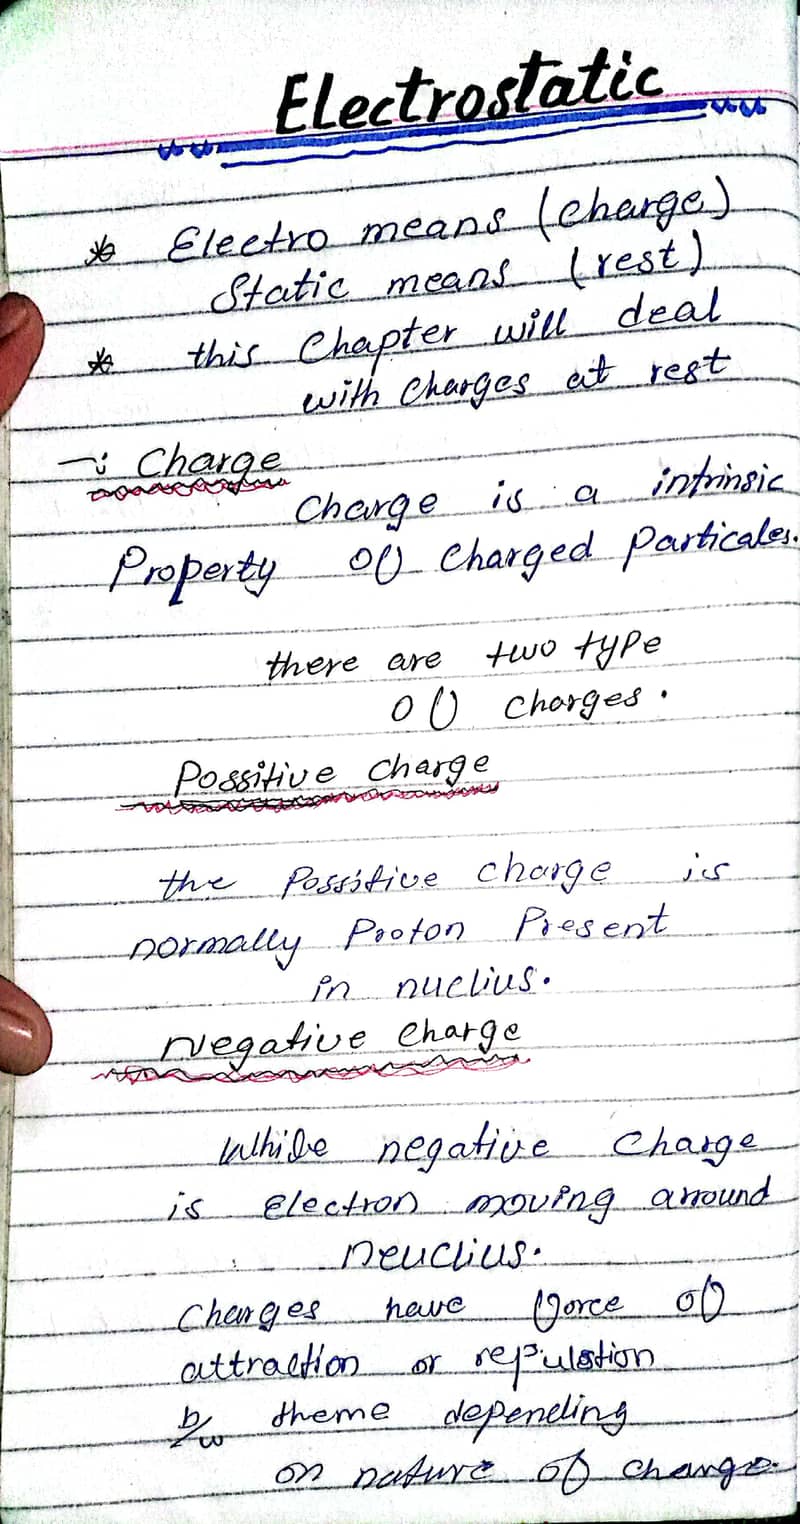 Electrostatic
* Electro means (charge)
Static means (rest)
* this Chapter will deal
with charges at rest
-: Charge
Charge is a intrinsic
Property of charged Particales.
there are two type
of charges.
Possitive charge
the Possitive charge is
normally Proton Present
in nuclius.
Negative charge
While negative charge
is Electron moving arround
neuclius.
Charges have force of
attraction or repulstion
b/w theme depending
on nature of charge.